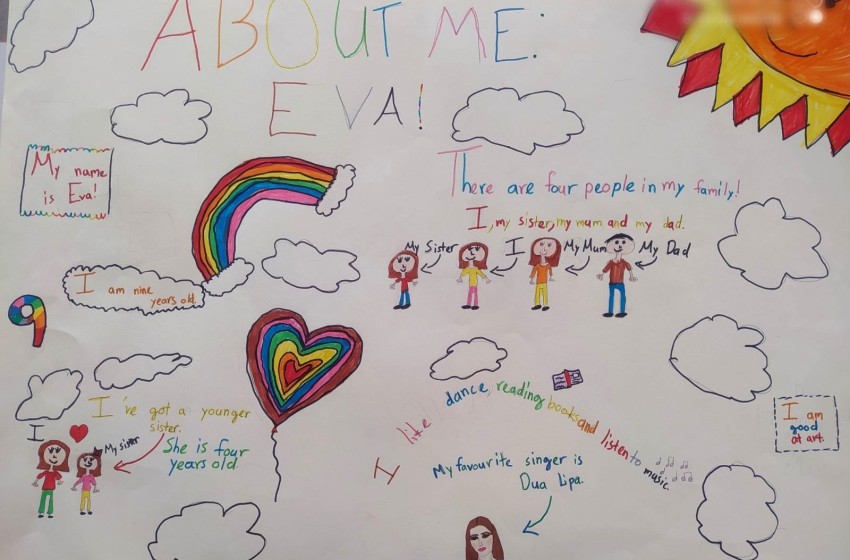 ABOUT ME:
EVA!
My name
is Eva!
There are four people in my family!
I, my sister, my mum and my dad.
My Sister
I
My Mum
My Dad
I am nine
years old.
9
I've got a younger
sister.
I
My sister
She is four
years old
I like dance, reading books and listen to music.
My favourite singer is
Dua Lipa.
I am
good
at art.